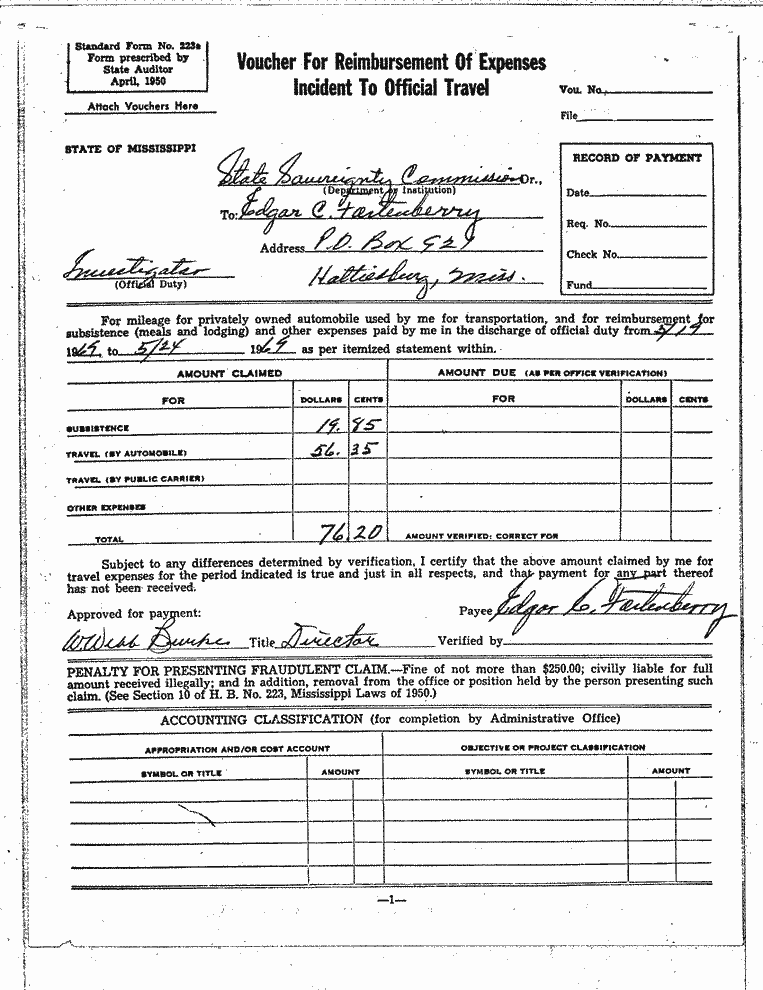 Standard Form No. 223a
Form prescribed by
State Auditor
April, 1950
Attach Vouchers Here
Voucher For Reimbursement Of Expenses
Incident To Official Travel
Vou. No.
File
STATE OF MISSISSIPPI
State Sovereignty Commission Dr.,
(Department or Institution)
To: Edgar C. Fortenberry
Address P.O. Box 929
Investigator
(Official Duty)
Hattiesburg, Miss.
RECORD OF PAYMENT
Date
Req. No.
Check No.
Fund
For mileage for privately owned automobile used by me for transportation, and for reimbursement for
subsistence (meals and lodging) and other expenses paid by me in the discharge of official duty from 5/19
1969, to 5/24 1969 as per itemized statement within.
AMOUNT CLAIMED AMOUNT DUE (AS PER OFFICE VERIFICATION)
FOR DOLLARS CENTS FOR DOLLARS CENTS
SUBSISTENCE 19. 85
TRAVEL (BY AUTOMOBILE) 56. 35
TRAVEL (BY PUBLIC CARRIER)
OTHER EXPENSES
TOTAL 76.20 AMOUNT VERIFIED: CORRECT FOR
Subject to any differences determined by verification, I certify that the above amount claimed by me for
travel expenses for the period indicated is true and just in all respects, and that payment for any part thereof
has not been received.
Approved for payment:
Payee Edgar C. Fortenberry
W Webb Burke Title Director Verified by
PENALTY FOR PRESENTING FRAUDULENT CLAIM.—Fine of not more than $250.00; civilly liable for full
amount received illegally; and in addition, removal from the office or position held by the person presenting such
claim. (See Section 10 of H. B. No. 223, Mississippi Laws of 1950.)
ACCOUNTING CLASSIFICATION (for completion by Administrative Office)
APPROPRIATION AND/OR COST ACCOUNT OBJECTIVE OR PROJECT CLASSIFICATION
SYMBOL OR TITLE AMOUNT SYMBOL OR TITLE AMOUNT
—1—